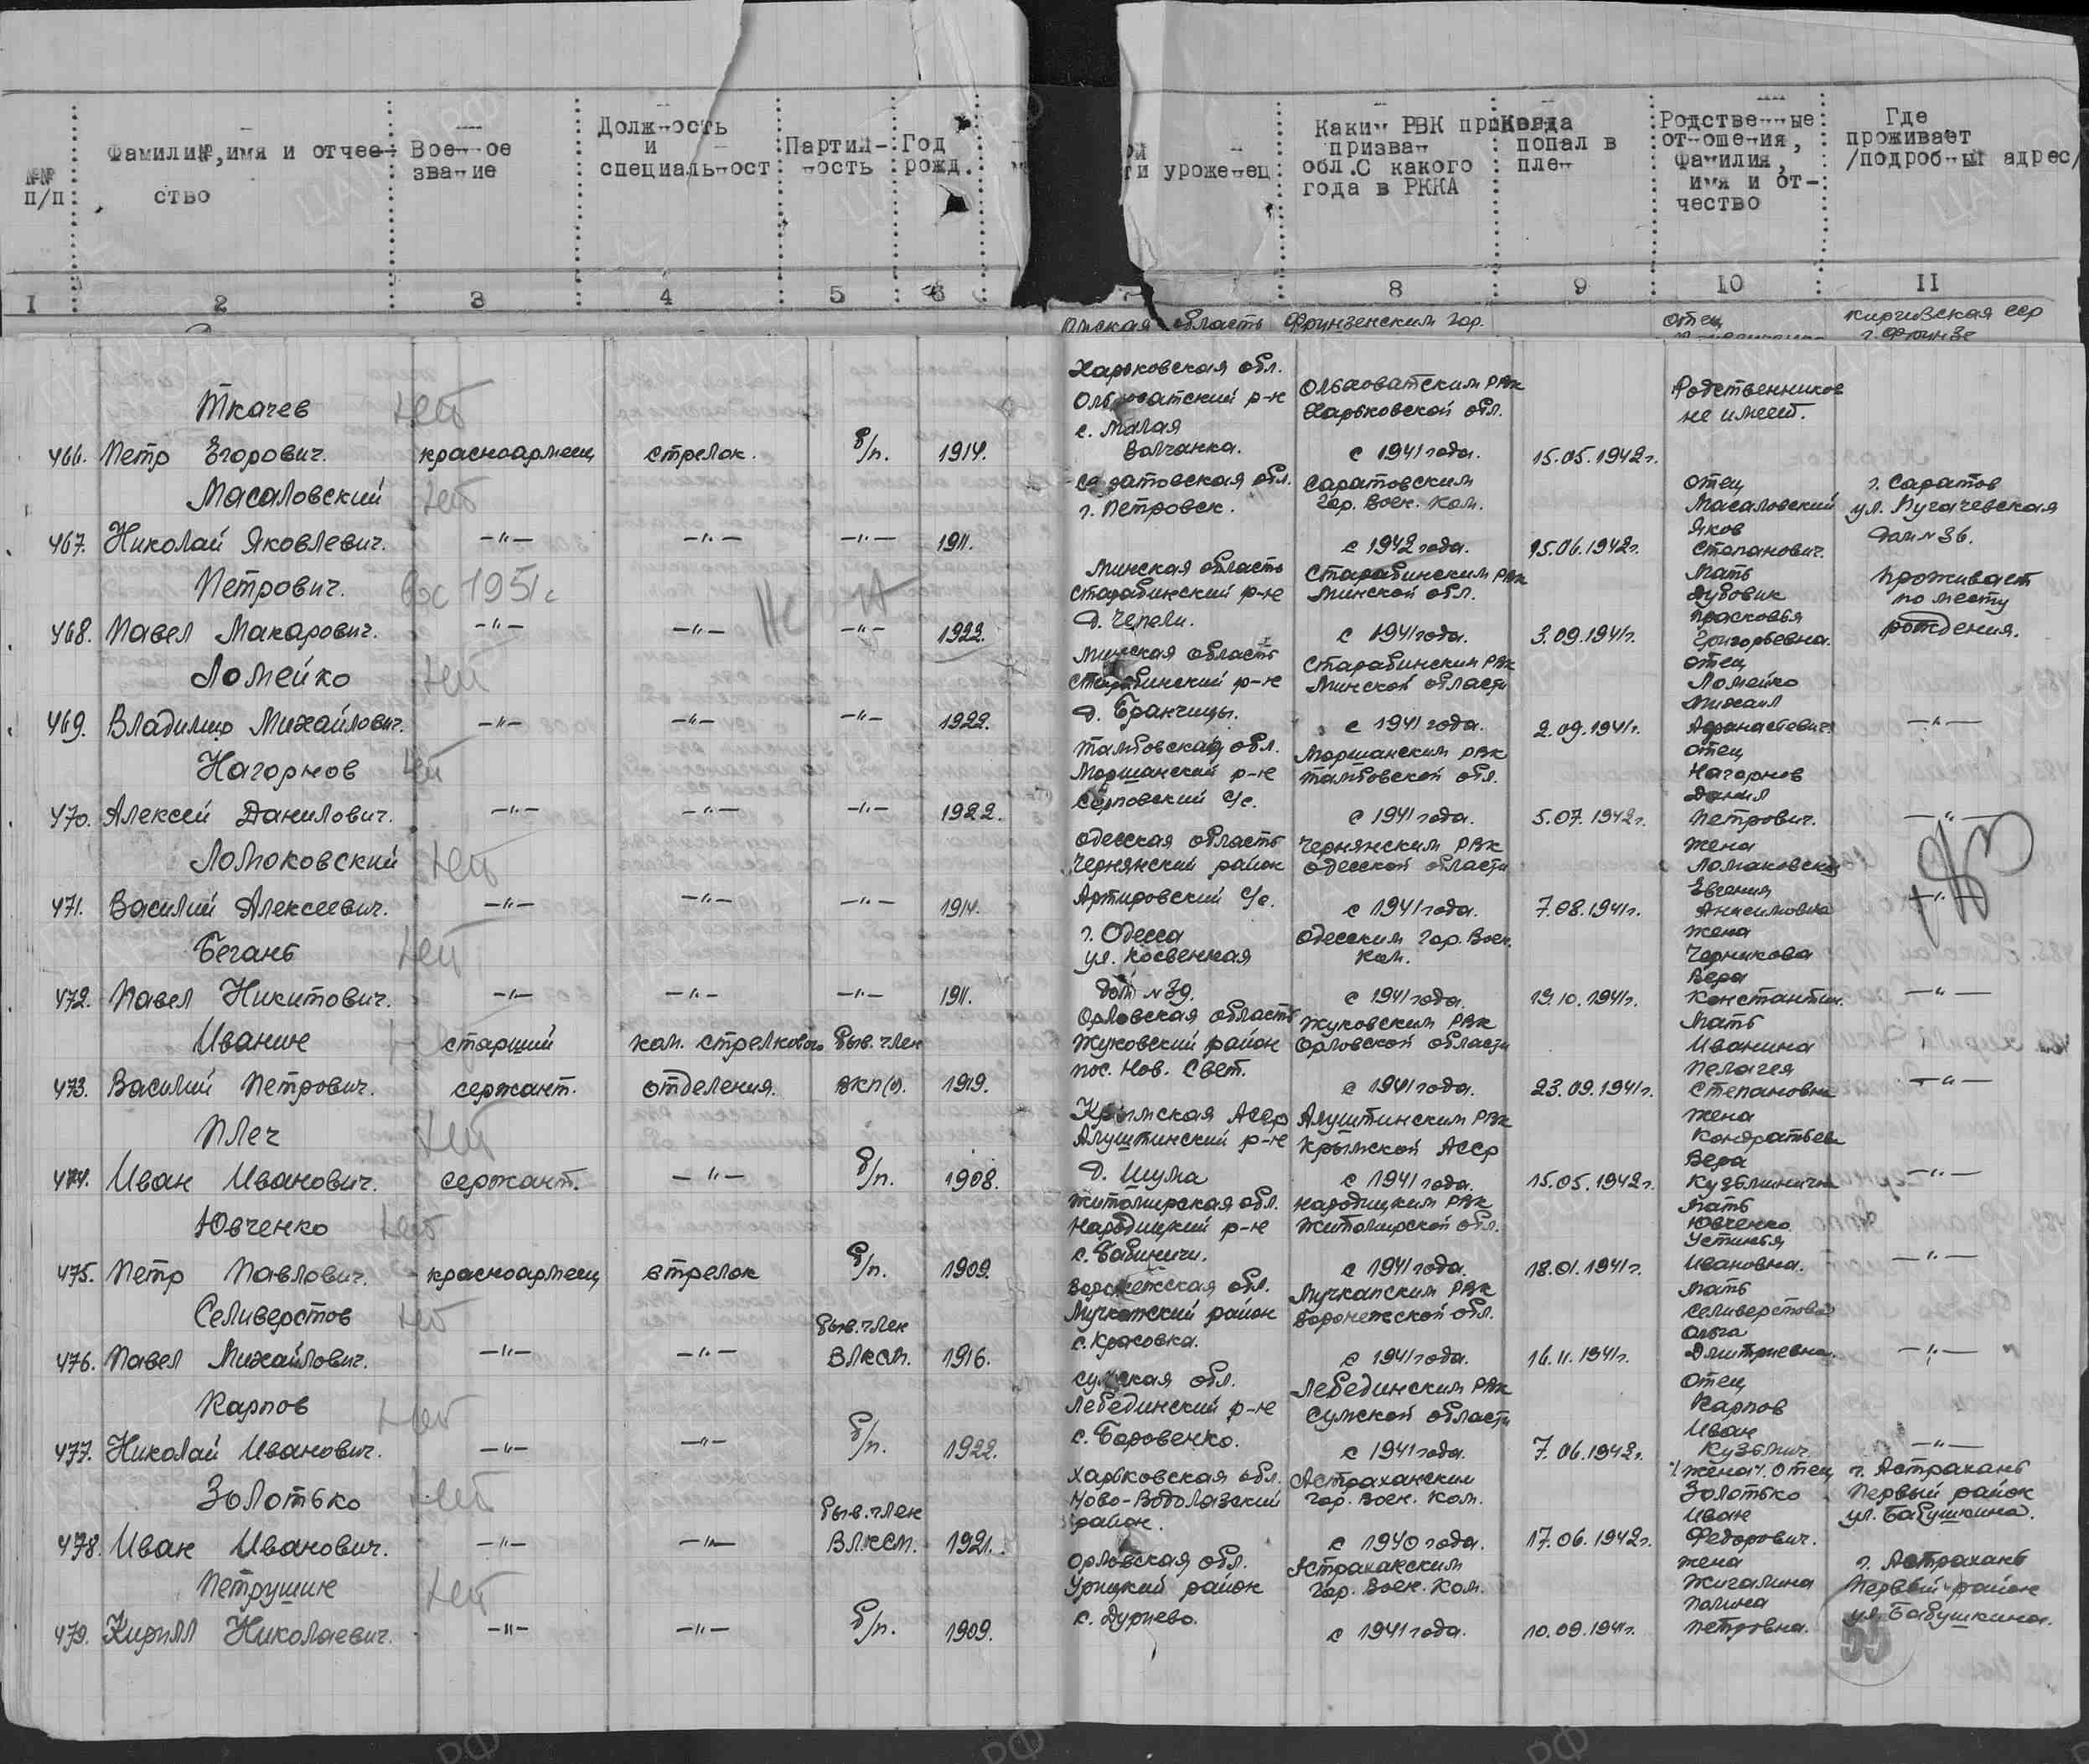 №№ п/п
Фамилия, имя и отчество
Военное звание
Должность и специальност
Партийность
Год рожд.
уроженец
Каким РВК призван обл. С какого года в РККА
Когда попал в плен
Родственные отношения, фамилия, имя и отчество
Где проживает /подробный адрес/
1 2 3 4 5 6 8 9 10 11
область Фрунзенским гор. отец Киргизская ССР
г. Фрунзе
Ткачев нет Харьковская обл. Ольховатским РВК Родственников
Ольховатский р-н Харьковской обл. не имеет.
с. Малая
466. Петр Егорович. красноармеец стрелок. б/п. 1914. Волчанка. с 1941 года. 15.05.1942г.
Масаловский нет Саратовская обл. Саратовским отец г. Саратов
г. Петровск. Гор. Воен. Ком. Масаловский ул. Пугачевская
Яков дом №36.
467. Николай Яковлевич. —"— —"— —"— 1911. с 1942 года. 15.06.1942г. Степанович.
Петрович. 1951 Минская область Старобинским РВК Мать Проживает
Старобинский р-н Минской обл. Дубовик по месту
Прасковья рождения.
468. Павел Макарович. —"— —"— —"— 1922. д. Чепели. с 1941 года. 3.09.1941г. Григорьевна.
Ломейко нет Минская область Старобинским РВК отец
Старобинский р-н Минской области Ломейко
Михаил
469. Владимир Михайлович. —"— —"— —"— 1922. д. Бранчицы. с 1941 года. 2.09.1941г. Афанасьевич —"—
Нагорнов нет Тамбовская обл. Моршанским РВК отец
Моршанский р-н Тамбовской обл. Нагорнов
Данил
470. Алексей Данилович. —"— —"— —"— 1922. Серповский с/с. с 1941 года. 5.07.1942г. Петрович. —"—
Ломоковский нет Одесская область Чернянским РВК жена
Чернянский район Одесской области
Евгения
471. Василий Алексеевич. —"— —"— —"— 1914. Артировский с/с. с 1941 года. 7.08.1941г. Анисимовна —"—
Бегань нет г. Одесса Одесским Гор. Воен. жена
ул. Косвенная Ком. Черникова
Вера
472. Павел Никитович. —"— —"— —"— 1911. дом №39. с 1941 года. 19.10.1941г. Константин. —"—
Иванин старший ком. стрелкового быв. член Орловская область Жуковским РВК Мать
Жуковский район Орловской области Иванина
пос. Нов. Свет. Пелагея
473. Василий Петрович. сержант. отделения. ВКП(б). 1919. с 1941 года. 23.09.1941г. Степановна —"—
Плеч нет Крымская АССР Алуштинским РВК жена
Алуштинский р-н Крымской АССР
Вера
474. Иван Иванович. сержант. —"— б/п. 1908. д. Шума с 1941 года. 15.05.1942г. Кузьминична —"—
Ювченко нет Житомирская обл. Народицким РВК Мать
Народицкий р-н Житомирской обл. Ювченко
Устинья
475. Петр Павлович. красноармеец стрелок б/п. 1909. с. Бабиничи. с 1941 года. 18.01.1941г. Ивановна. —"—
Селиверстов нет Воронежская обл. Мучкапским РВК Мать
быв. член Мучкапский район Воронежской обл. Селиверстова
Ольга
476. Павел Михайлович. —"— —"— ВЛКСМ. 1916. с. Красовка. с 1941 года. 16.11.1941г. Дмитриевна. —"—
Карпов нет Сумская обл. Лебединским РВК Отец
Лебединский р-н Сумской области Карпов
Иван
477. Николай Иванович. —"— —"— б/п. 1922. с. Боровенко. с 1941 года. 7.06.1942г. Кузьмич —"—
Золотько нет Харьковская обл. Астраханским жена отец г. Астрахань
быв. член Ново-Водолазский Гор. Воен. Ком. Золотько Первый район
район. Иван ул. Бабушкина.
478. Иван Иванович. —"— —"— ВЛКСМ. 1921. с 1940 года. 17.06.1942г. Федорович.
Петрушин нет Орловская обл. Астраханским жена г. Астрахань
Урицкий район Гор. Воен. Ком. Жигалина Первый район
Полина ул. Бабушкина.
479. Кирилл Николаевич. —"— —"— б/п. 1909. с. Дурнево. с 1941 года. 10.09.1941г. Петровна.
55